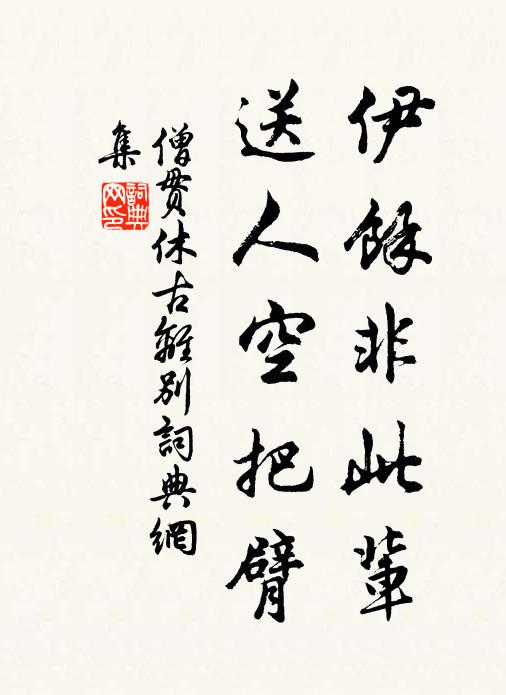 伊餘非此輩
送人空把臂
僧貫休古離別詞典網
集
詞典
网印